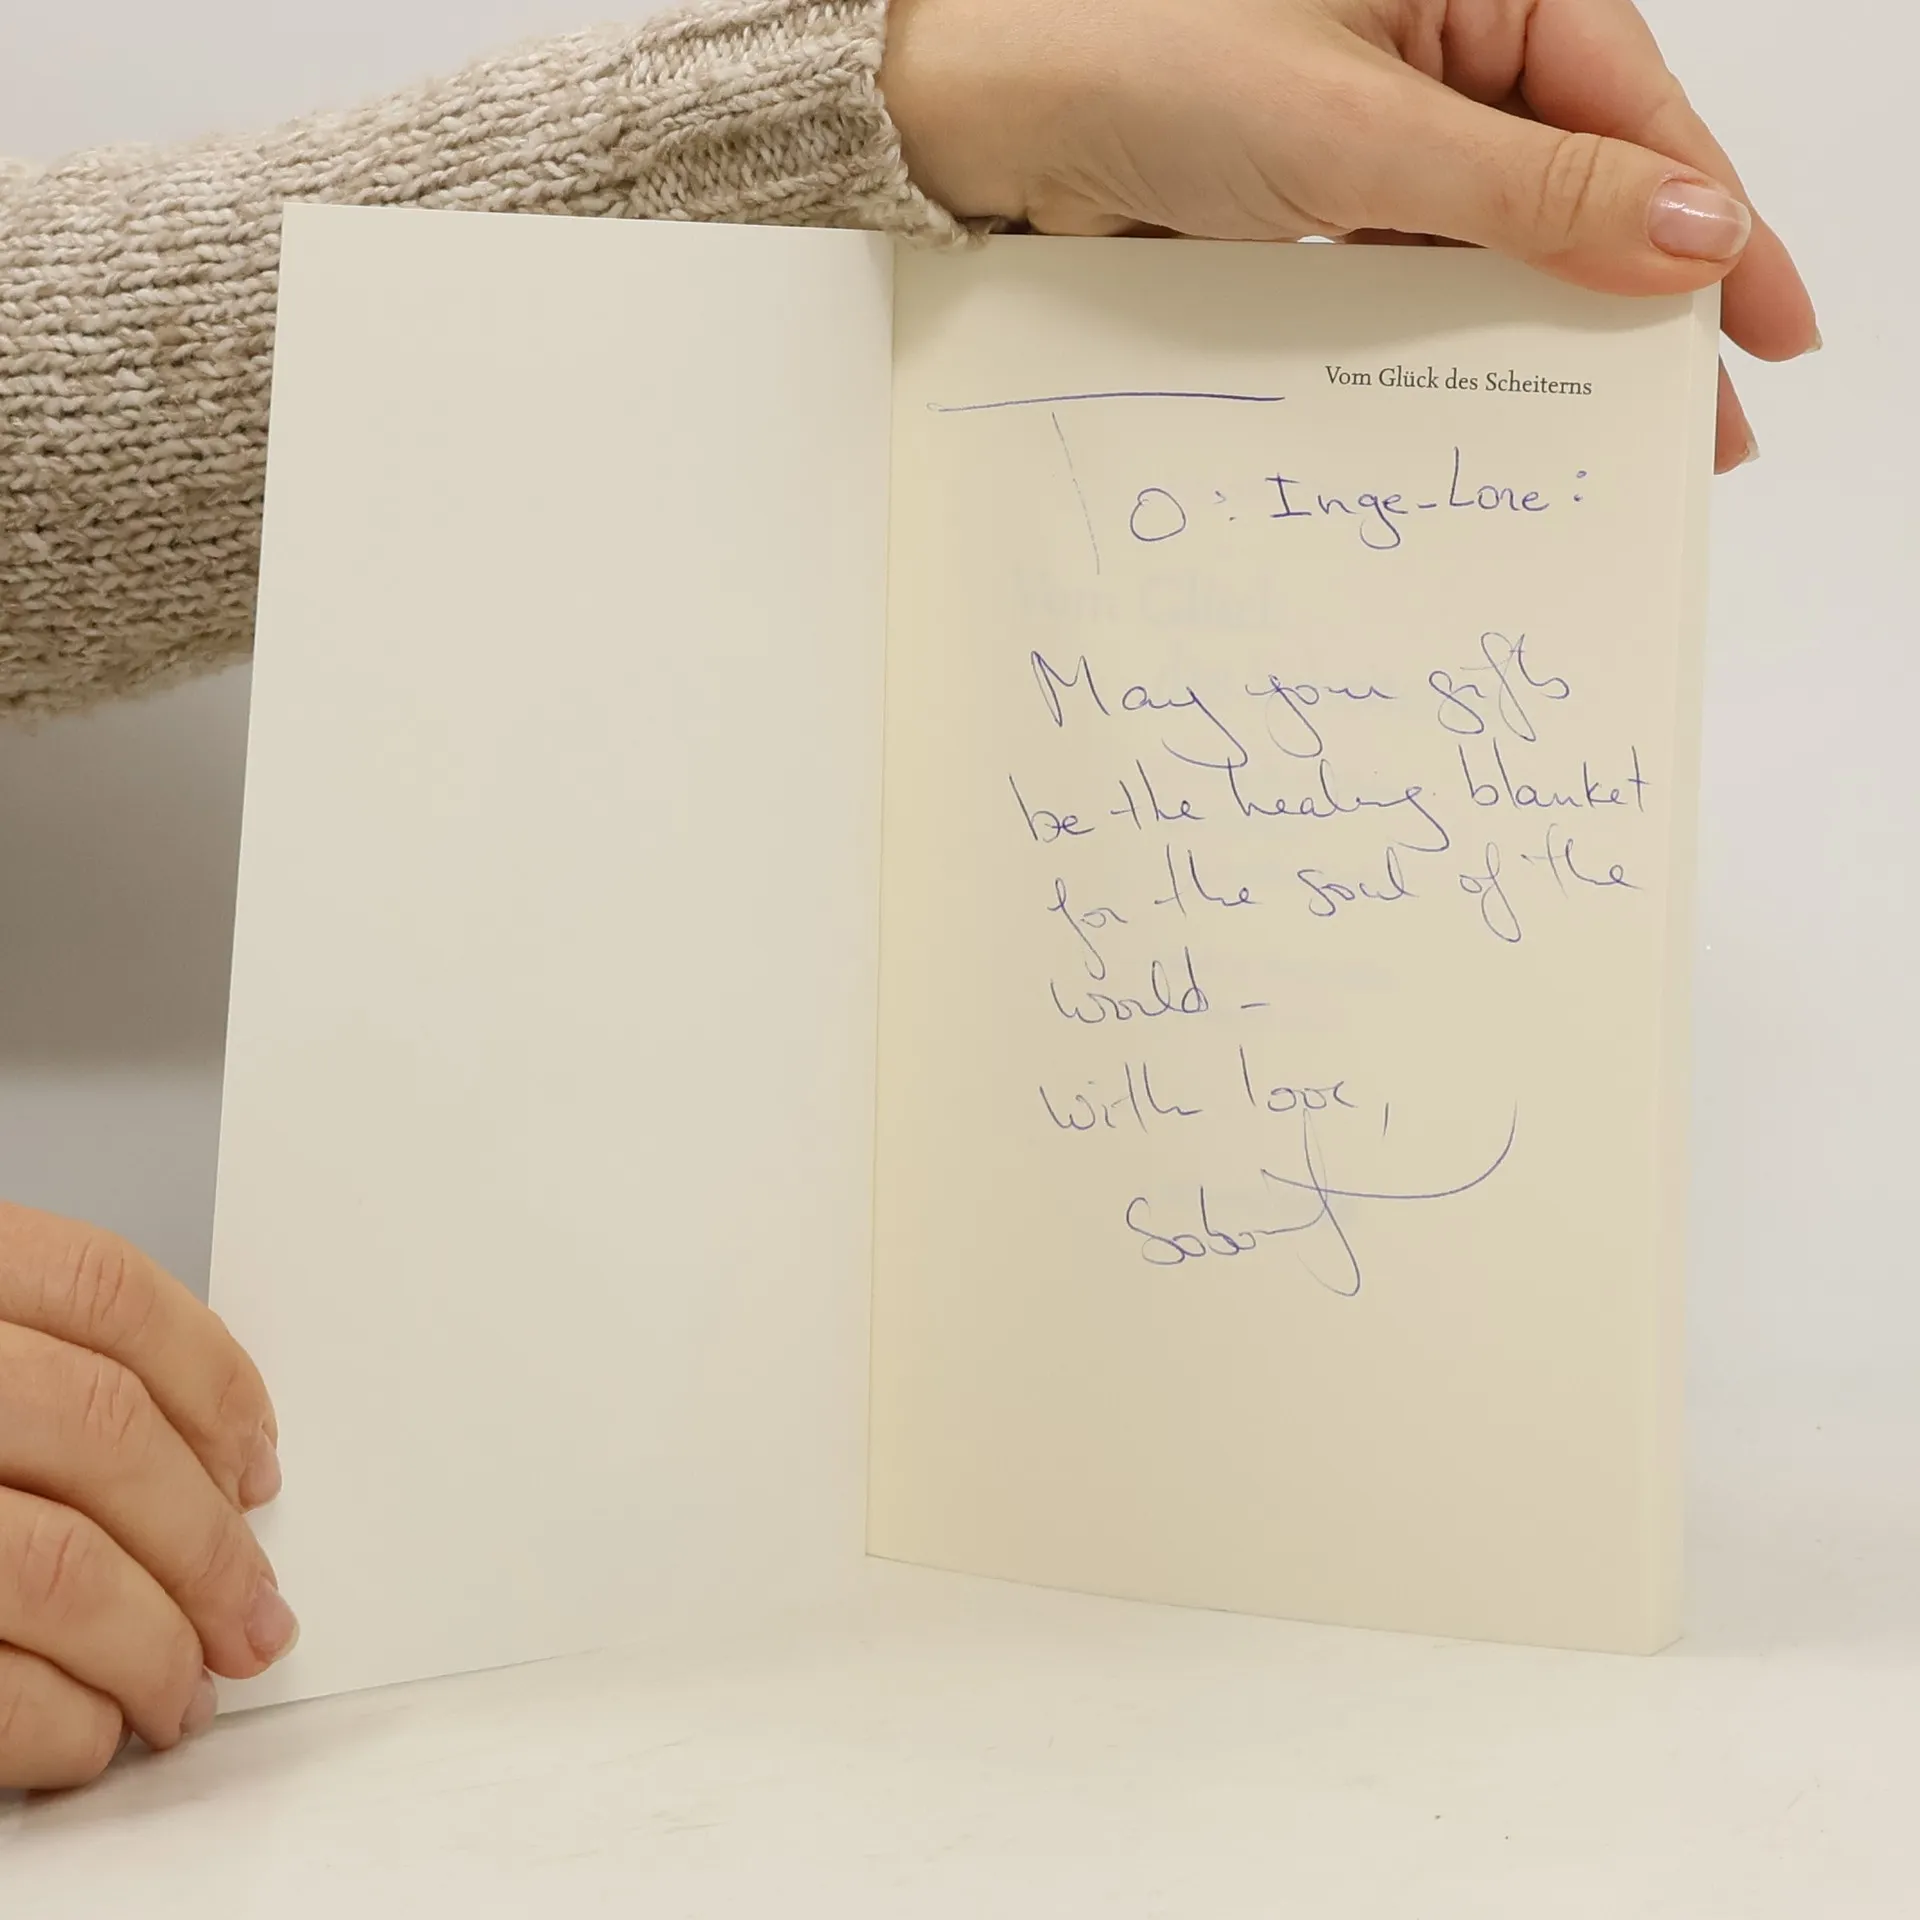 Vom Glück des Scheiterns
To: Inge-Lore:
May your gifts
be the healing blanket
for the soul of the
world -
with love,